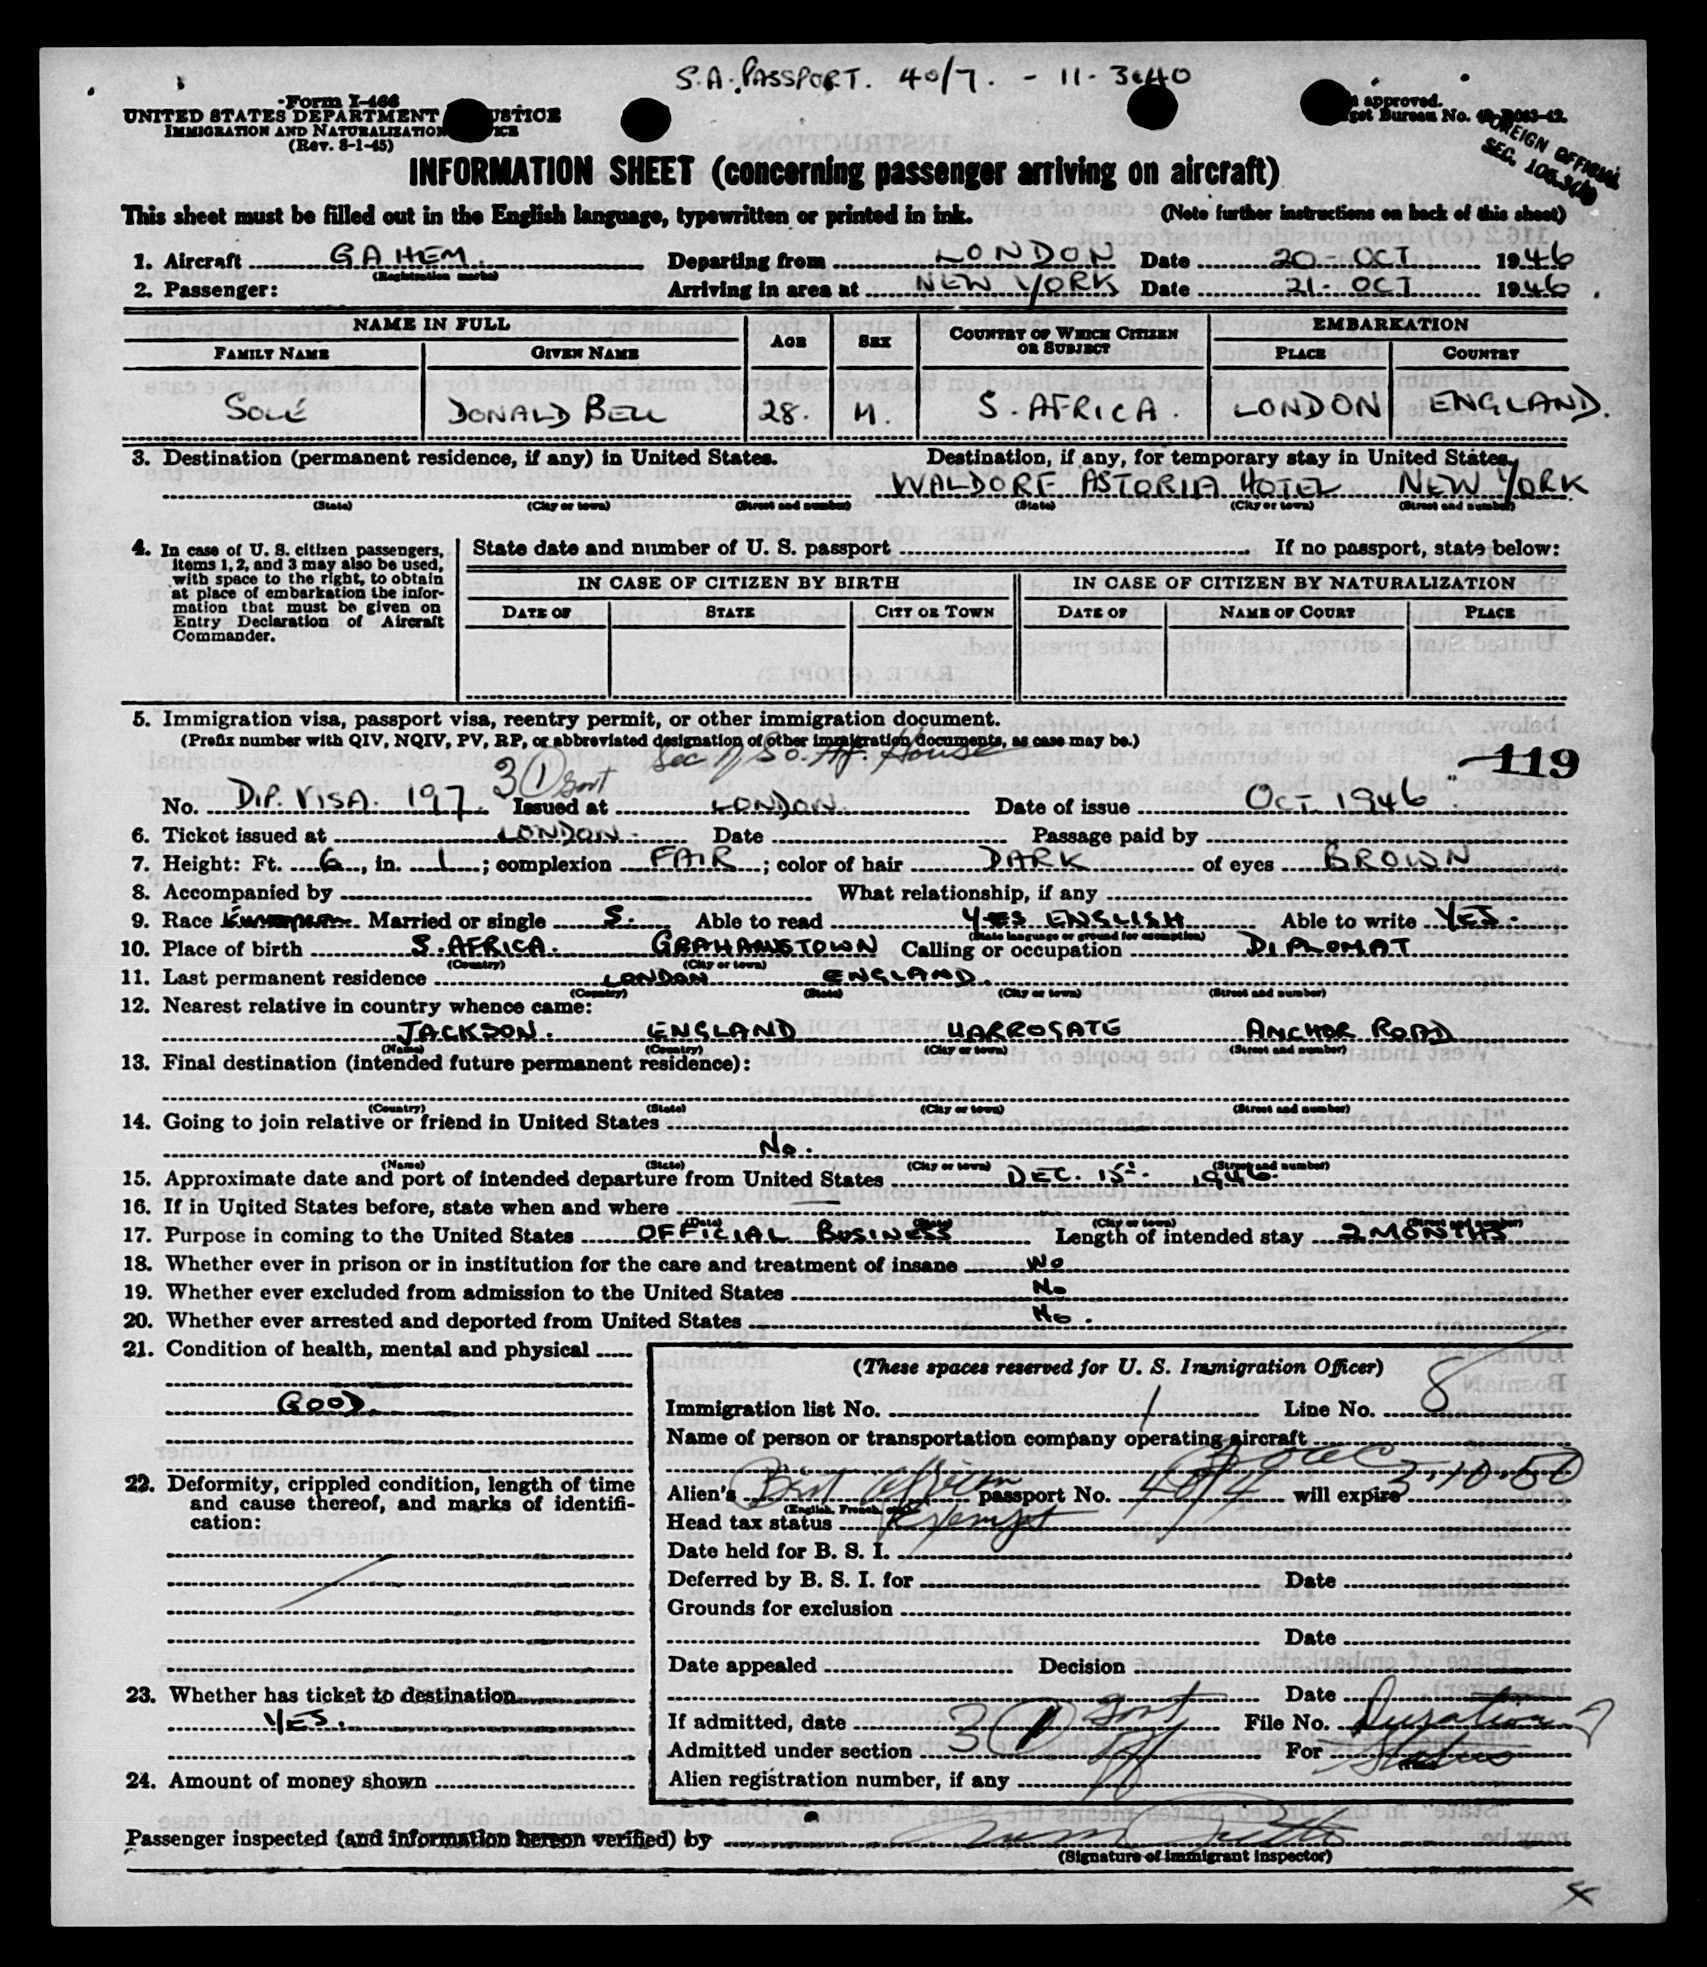 S.A. PASSPORT. 40/7. - 11-3-40
Form I-466
UNITED STATES DEPARTMENT JUSTICE
IMMIGRATION AND NATURALIZATION
(Rev. 8-1-45)
approved.
Bureau No.
FOREIGN OFFICIAL
SEC.
INFORMATION SHEET (concerning passenger arriving on aircraft)
This sheet must be filled out in the English language, typewritten or printed in ink. (Note further instructions on back of this sheet)
1. Aircraft GAHEM. Departing from LONDON Date 20-OCT 1946
(Registration marks)
2. Passenger: Arriving in area at NEW YORK Date 21-OCT 1946.
NAME IN FULL AGE SEX COUNTRY OF WHICH CITIZEN OR SUBJECT EMBARKATION
FAMILY NAME GIVEN NAME PLACE COUNTRY
SOLÉ DONALD BELL 28. M. S. AFRICA. LONDON ENGLAND.
3. Destination (permanent residence, if any) in United States. Destination, if any, for temporary stay in United States.
WALDORF ASTORIA HOTEL NEW YORK
(State) (City or town) (Street and number) (State) (City or town) (Street and number)
4. In case of U. S. citizen passengers, items 1, 2, and 3 may also be used, with space to the right, to obtain at place of embarkation the information that must be given on Entry Declaration of Aircraft Commander.
State date and number of U. S. passport If no passport, state below:
IN CASE OF CITIZEN BY BIRTH IN CASE OF CITIZEN BY NATURALIZATION
DATE OF STATE CITY OR TOWN DATE OF NAME OF COURT PLACE
5. Immigration visa, passport visa, reentry permit, or other immigration document.
(Prefix number with QIV, NQIV, PV, RP, or abbreviated designation of other immigration documents, as case may be.)
Sec of So. Af. House
119
3(1) Govt
No. DIP. VISA. 197. Issued at LONDON. Date of issue OCT 1946
6. Ticket issued at LONDON. Date Passage paid by
7. Height: Ft. 6, in. 1; complexion FAIR; color of hair DARK of eyes BROWN
8. Accompanied by What relationship, if any
9. Race Married or single S. Able to read YES ENGLISH Able to write YES.
(State language or ground for exemption)
10. Place of birth S. AFRICA. GRAHAMSTOWN Calling or occupation DIPLOMAT
(Country) (City or town)
11. Last permanent residence LONDON ENGLAND.
(Country) (State) (City or town) (Street and number)
12. Nearest relative in country whence came:
JACKSON. ENGLAND HARROGATE ANCHOR ROAD
(Name) (Country) (City or town) (Street and number)
13. Final destination (intended future permanent residence):
(Country) (State) (City or town) (Street and number)
14. Going to join relative or friend in United States
No.
(Name) (State) (City or town) (Street and number)
15. Approximate date and port of intended departure from United States DEC. 15. 1946.
16. If in United States before, state when and where
(Date) (State) (City or town) (Street and number)
17. Purpose in coming to the United States OFFICIAL BUSINESS Length of intended stay 2 MONTHS
18. Whether ever in prison or in institution for the care and treatment of insane No
19. Whether ever excluded from admission to the United States No
20. Whether ever arrested and deported from United States No.
21. Condition of health, mental and physical
GOOD.
22. Deformity, crippled condition, length of time and cause thereof, and marks of identification:
23. Whether has ticket to destination
YES.
24. Amount of money shown
(These spaces reserved for U. S. Immigration Officer)
Immigration list No. 1 Line No. 8
Name of person or transportation company operating aircraft
Alien's passport No. will expire 3-10-50
(English, French, etc.)
Head tax status Exempt
Date held for B. S. I.
Deferred by B. S. I. for Date
Grounds for exclusion
Date
Date appealed Decision
Date
If admitted, date File No. Duration of
Admitted under section 3(1) Govt Off For Status
Alien registration number, if any
Passenger inspected (and information hereon verified) by
(Signature of immigrant inspector)